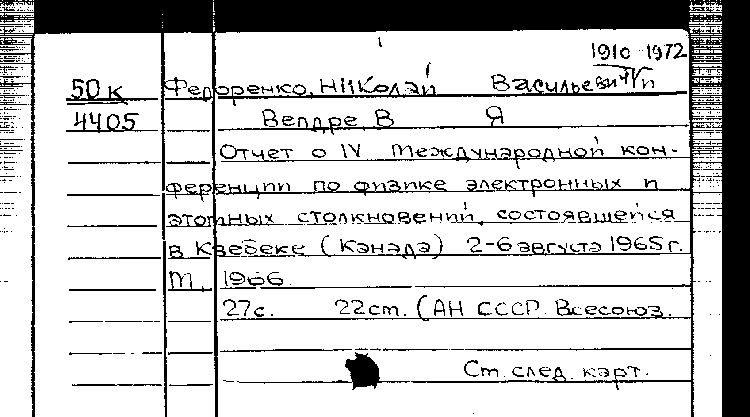 1910-1972
50к Федоренко, Николай Васильевич и
4405 Велдре, В Я
Отчет о IV Международной кон-
ференции по физике электронных и
атомных столкновений, состоявшейся
в Квебеке (Канада) 2-6 августа 1965г.
М., 1966.
27с. 22см. (АН СССР. Всесоюз.
См. след. карт.